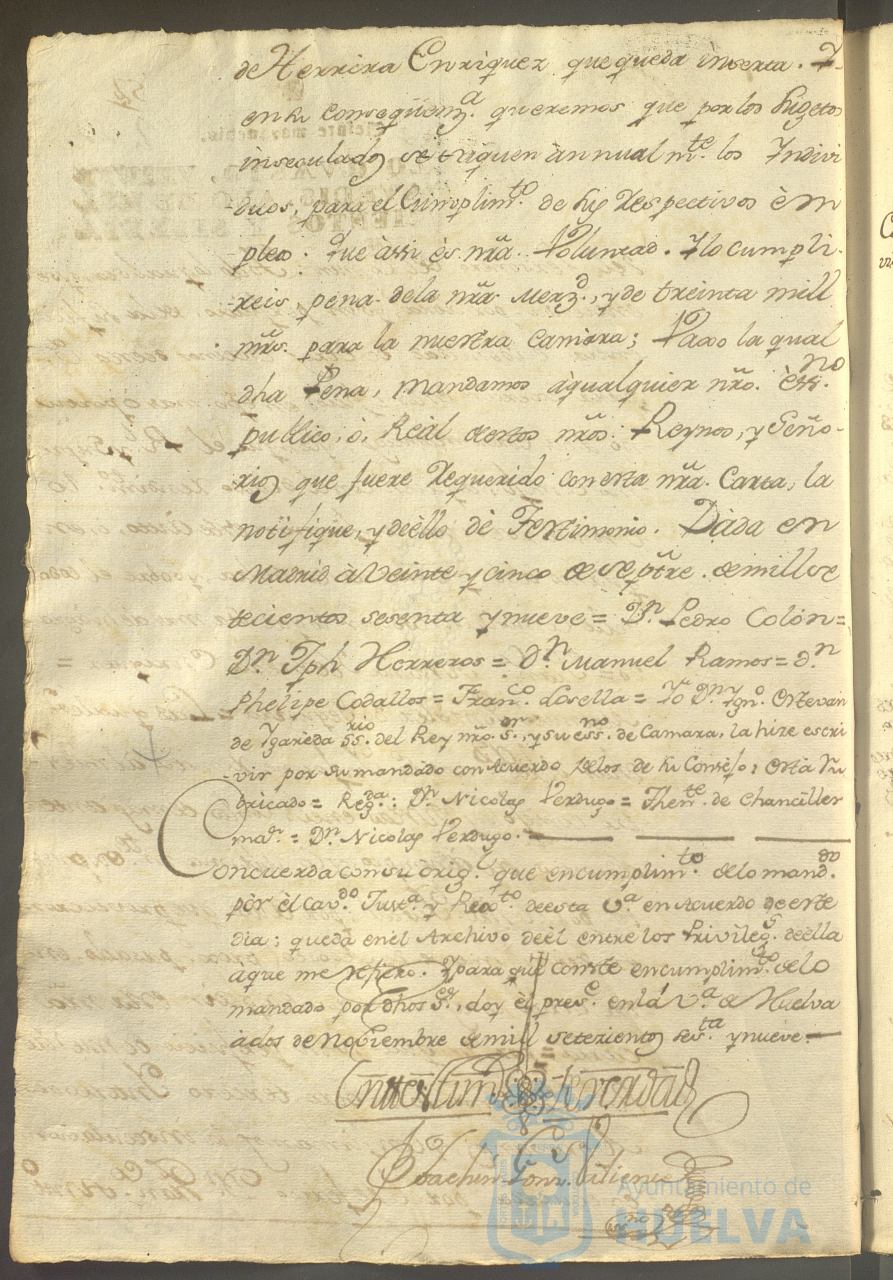 de Herrera Enriquez que queda inserta. Y
en su conseqüenz.a queremos que por los Sugetos
inseculados se saquen ànnualm.te los Indivi
-duos, para el Cumplim.to de sus Respectivos èm
pleos. Que àssi ès nrã. Voluntad. Y lo cumpli-
-reis, pena de la nrã. Merz.d, y de treinta mill
mrs. para la nuestra Camara; Vaxo la qual
dha Pena, mandamos à qualquier nrõ. èss.no
publico, ò, Reàl de estos nrõs. Reynos, y Seño-
-rios que fuere Requerido con esta nrã. Carta, la
notifique, y de èllo dè Testimonio. Dada en
Madrid à Veinte y cinco de Septre. de mill se
tecientos sesenta y nueve = D.n Pedro Colón =
D.n Jph Herreros = D.n Manuel Ramos = D.n
Phelipe Codallos = Fran.co Losella = Yo D.n Ygn.o Estevan
de Ygareda ss.rio del Rey nrõ. S.r, y su ess.no de Camara, la hize escri
-vir por su mandado con Acuerdo de los de su Consejo: Està Ru
bricado = Reg.da: D.n Nicolas Verdugo = Then.te de Chanciller
ma.r = D.n Nicolas Verdugo.
Concuerda con su orig.l que en cumplim.to de lo mand.do
pòr èl Cav.do Just.a y Rex.to de esta V.a en Acuerdo de este
dia; queda en el Archivo de èl entre los Privileg.s de ella
a que me refiero. Y para que conste en cumplim.to de lo
mandado por dhos S.es, doy èl pres.e en la V.a de Huelva
à dos de Noviembre de mill setezientos ses.ta y nueve.
En testim.o de verdad
Joachin Gonz.
Ayuntamiento de
HUELVA